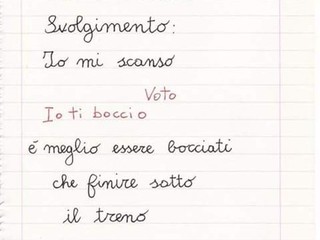 Svolgimento:
Io mi scanso
Voto
Io ti boccio
é meglio essere bocciati
che finire sotto
il treno